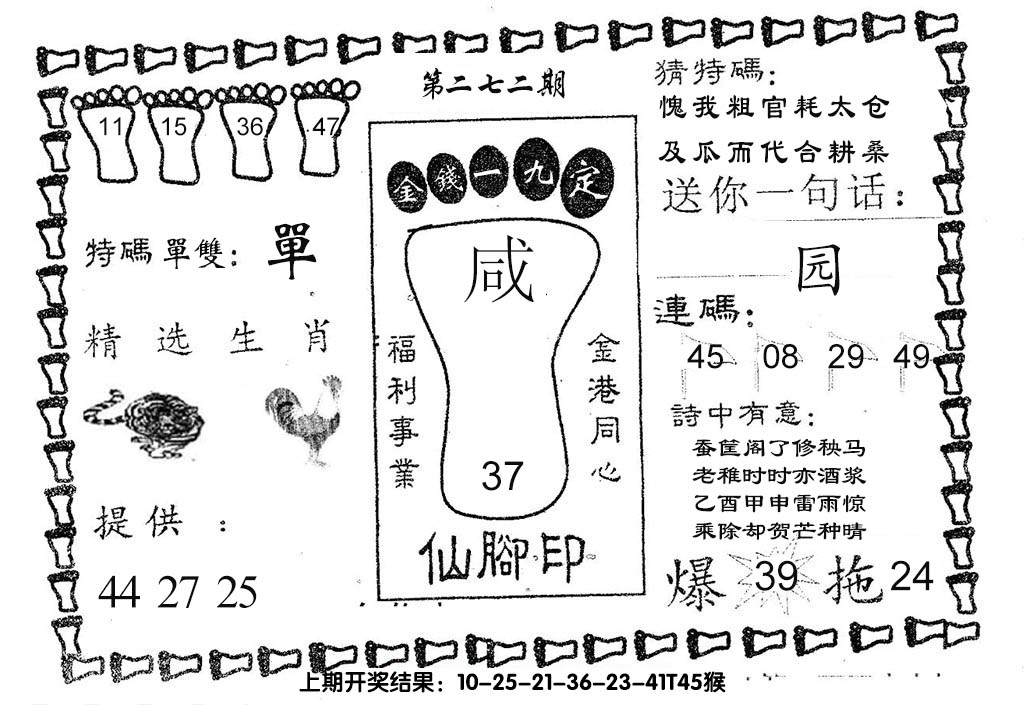 第二七二期
11 15 36 47
特碼單雙：單
精选生肖
提供：
44 27 25
金錢一九定
咸
福利事業
金港同心
37
仙腳印
猜特碼：
愧我粗官耗太仓
及瓜而代合耕桑
送你一句话：
园
連碼：
45 08 29 49
詩中有意：
蚕筐阁了修秧马
老稚时时亦酒浆
乙酉甲申雷雨惊
乘除却贺芒种晴
爆 39 拖 24
上期开奖结果：10-25-21-36-23-41T45猴